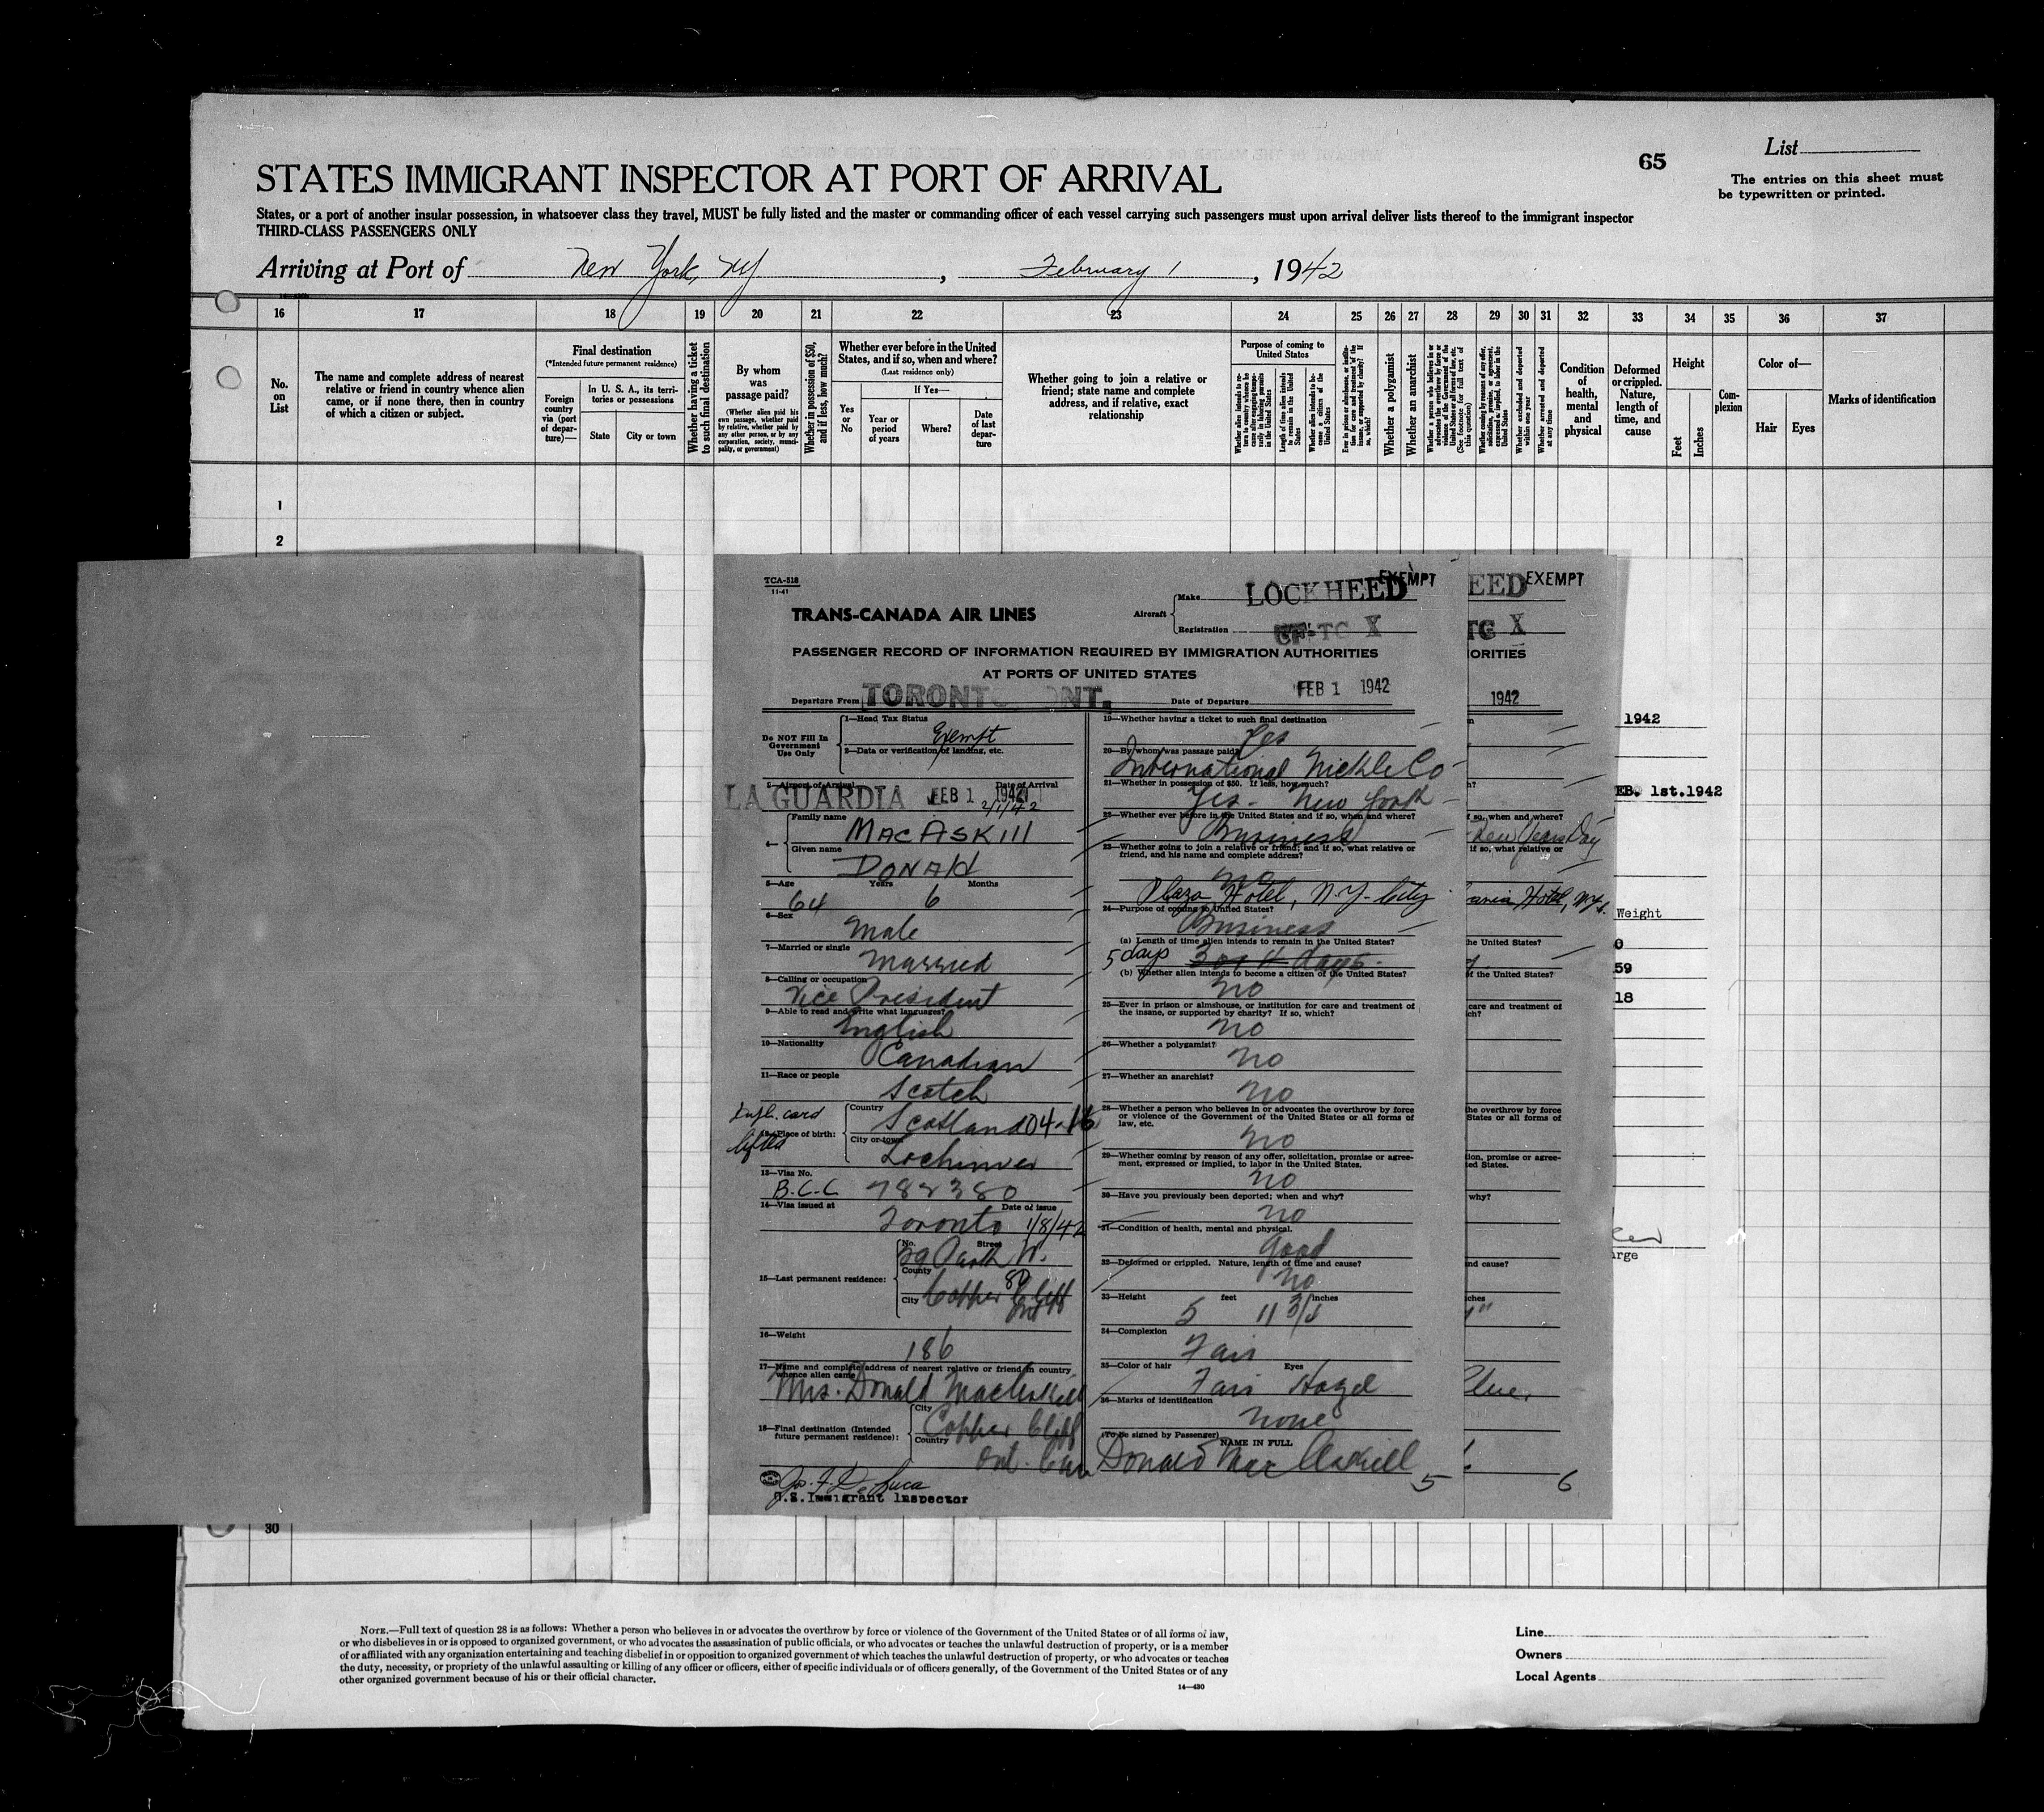 STATES IMMIGRANT INSPECTOR AT PORT OF ARRIVAL
65
List
The entries on this sheet must
be typewritten or printed.
States, or a port of another insular possession, in whatsoever class they travel, MUST be fully listed and the master or commanding officer of each vessel carrying such passengers must upon arrival deliver lists thereof to the immigrant inspector
THIRD-CLASS PASSENGERS ONLY
Arriving at Port of New York, NY, February 1, 1942
16 17 18 19 20 21 22 23 24 25 26 27 28 29 30 31 32 33 34 35 36 37
No. on List
The name and complete address of nearest
relative or friend in country whence alien
came, or if none there, then in country
of which a citizen or subject.
Final destination
(*Intended future permanent residence)
Foreign country via (port of departure)—
In U. S. A., its territories or possessions
State
City or town
Whether having a ticket to such final destination
By whom was passage paid?
(Whether alien paid his own passage, whether paid by relative, whether paid by any other person, or by any corporation, society, municipality, or government)
Whether in possession of $50, and if less, how much?
Whether ever before in the United
States, and if so, when and where?
(Last residence only)
Yes or No
If Yes—
Year or period of years
Where?
Date of last departure
Whether going to join a relative or
friend; state name and complete
address, and if relative, exact
relationship
Purpose of coming to United States
Length of time alien intends to remain in the United States
Whether alien intends to become a citizen of the United States
Whether a polygamist
Whether an anarchist
Whether excluded and deported within one year
Whether arrested and deported at any time
Condition of health, mental and physical
Deformed or crippled. Nature, length of time, and cause
Height
Feet
Inches
Complexion
Color of—
Hair
Eyes
Marks of identification
1
2
TCA-518
11-41
TRANS-CANADA AIR LINES
Aircraft
Make LOCKHEED
EXEMPT
Registration CF-TC X
PASSENGER RECORD OF INFORMATION REQUIRED BY IMMIGRATION AUTHORITIES
AT PORTS OF UNITED STATES
Departure From TORONTO ONT.
Date of Departure FEB 1 1942
Do NOT Fill In
Government
Use Only
1—Head Tax Status
Exempt
2—Data or verification of landing, etc.
3—Airport of Arrival
Date of Arrival
LA GUARDIA FEB 1 1942
2/1/42
4—
Family name MACASKILL
Given name DONALD
5—Age Years Months
64 6
6—Sex
Male
7—Married or single
Married
8—Calling or occupation
Vice President
9—Able to read and write what languages?
English
10—Nationality
Canadian
11—Race or people
Scotch
card
lifted
12—Place of birth:
Country Scotland 04-16
City or town Lochinver
13—Visa No.
B.C.C. 782380
14—Visa issued at Date of issue
Toronto 1/8/42
15—Last permanent residence:
No. Street
County
City Copper Cliff
Ont
16—Weight
186
17—Name and complete address of nearest relative or friend in country
whence alien came
Mrs. Donald MacAskill
18—Final destination (Intended
future permanent residence):
City Copper Cliff
Country Ont. Can
Jos. F. De Luca
U.S. Immigrant Inspector
19—Whether having a ticket to such final destination
Yes
20—By whom was passage paid?
International Nickle Co
21—Whether in possession of $50. If less, how much?
Yes - New York
22—Whether ever before in the United States and if so, when and where?
Business
23—Whether going to join a relative or friend; and if so, what relative or
friend, and his name and complete address?
no
Plaza Hotel, N.Y. City
24—Purpose of coming to United States?
Business
(a) Length of time alien intends to remain in the United States?
5 days 3 or 4 days.
(b) Whether alien intends to become a citizen of the United States?
no
25—Ever in prison or almshouse, or institution for care and treatment of
the insane, or supported by charity? If so, which?
no
26—Whether a polygamist?
no
27—Whether an anarchist?
no
28—Whether a person who believes in or advocates the overthrow by force
or violence of the Government of the United States or all forms of
law, etc.
no
29—Whether coming by reason of any offer, solicitation, promise or agree-
ment, expressed or implied, to labor in the United States.
no
30—Have you previously been deported; when and why?
no
31—Condition of health, mental and physical.
Good
32—Deformed or crippled. Nature, length of time and cause?
no
33—Height feet inches
5 11 3/4
34—Complexion
Fair
35—Color of hair Eyes
Fair Hazel
36—Marks of identification
none
(To be signed by Passenger) NAME IN FULL
Donald MacAskill
5
EED EXEMPT
TC X
ORITIES
1942
if so, when and where?
New Years Day
if so, what relative or
Hotel, N.Y.
the United States?
of the United States?
care and treatment of
the overthrow by force
States or all forms of
ion, promise or agree-
ted States.
why?
nd cause?
6
1942
EB. 1st.1942
Weight
0
59
18
arge
30
NOTE.—Full text of question 28 is as follows: Whether a person who believes in or advocates the overthrow by force or violence of the Government of the United States or of all forms of law,
or who disbelieves in or is opposed to organized government, or who advocates the assassination of public officials, or who advocates or teaches the unlawful destruction of property, or is a member
of or affiliated with any organization entertaining and teaching disbelief in or opposition to organized government of which teaches the unlawful destruction of property, or who advocates or teaches
the duty, necessity, or propriety of the unlawful assaulting or killing of any officer or officers, either of specific individuals or of officers generally, of the Government of the United States or of any
other organized government because of his or their official character.
14—430
Line
Owners
Local Agents